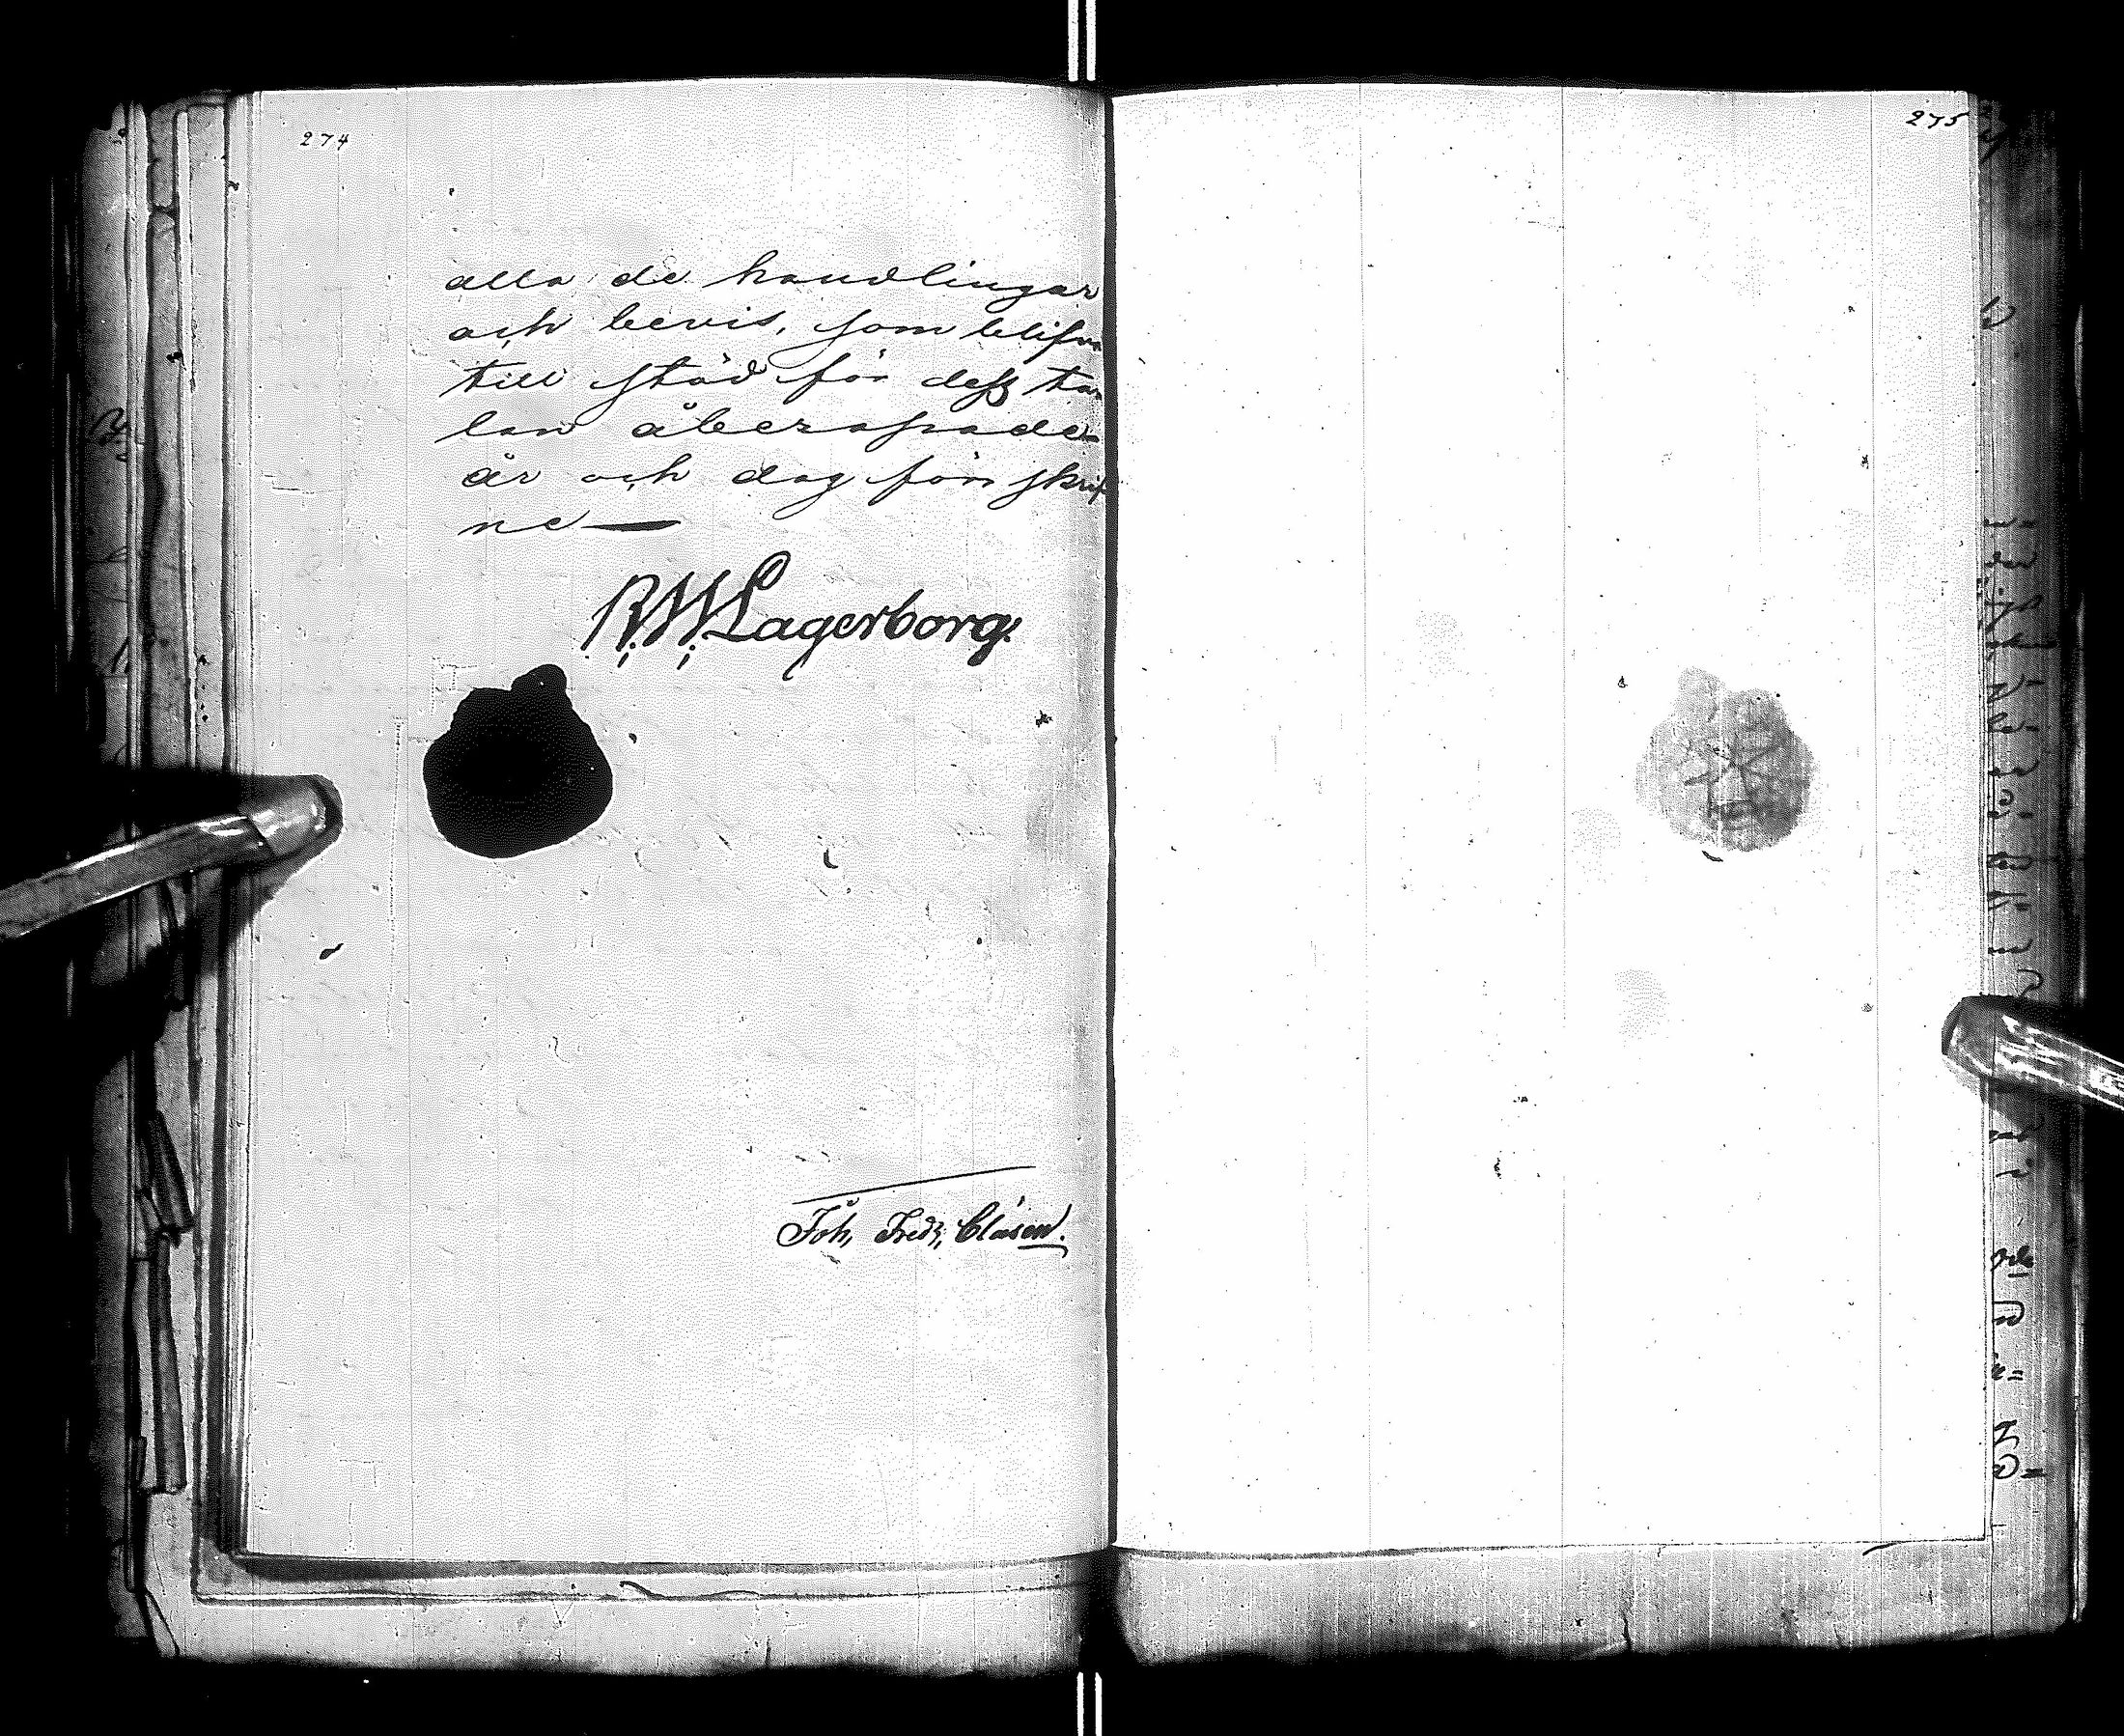 274
alla de handlingar
och bevis, som blifva
till stöd för dess ta-
lan åberopade.
år och dag förr skrif
ne —
R. W. Lagerborg.
Joh. Fredr. Clasen.
275